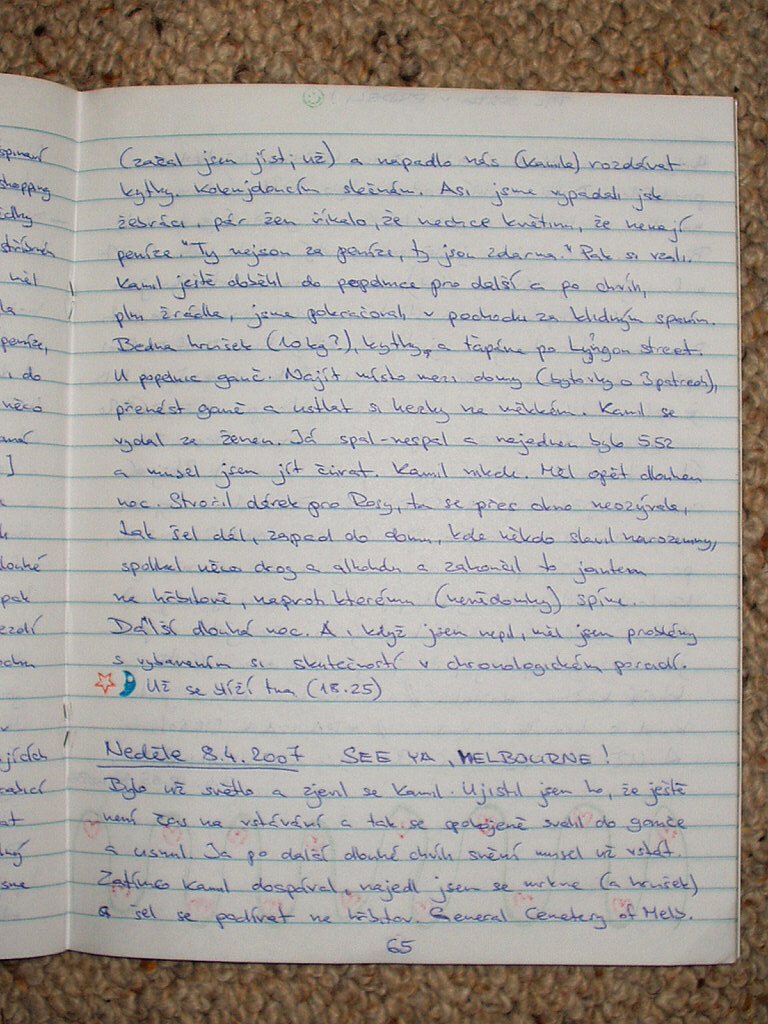 (začal jsem jíst; už) a napadlo nás (Kamila) rozdávat
kytky. Kolemjdoucím slečnám. Asi jsme vypadali jak
žebráci, pár žen říkalo, že nechce květinu, že nemají
peníze. "Ty nejsou za peníze, ty jsou zdarma." Pak si vzali.
Kamil ještě doběhl do popelnice pro další a po chvíli,
plni žrádla, jsme pokračovali v pochodu za klidným spaním.
Bedna hrušek (10 kg?), kytky, a ťapáme po Lyngon street.
U popelnic gauč. Najít místo mezi domy (bytovky o 3 patrech),
přenést gauč a ustlat si hezky na měkkém. Kamil se
vydal za ženou. Já spal-nespal a najednou bylo 5.52
a musel jsem jít čůrat. Kamil nikde. Měl opět dlouhou
noc. Stvořil dárek pro Rosy, ta se přes okno neozývala,
tak šel dál, zapad do domu, kde někdo slavil narozeniny,
spolkal něco drog a alkoholu a zakončil to jointem
na hřbitově, naproti kterému (nevědomky) spíme.
Další dlouhá noc. A i když jsem nepil, měl jsem problémy
s vybavením si skutečností v chronologickém pořadí.
Už se blíží tma (18.25)
Neděle 8.4.2007 SEE YA, MELBOURNE!
Bylo už světlo a zjevil se Kamil. Ujistil jsem ho, že ještě
není čas na vstávání a tak se spokojeně svalil do gauče
a usnul. Já po další dlouhé chvíli snění musel už vstát.
Zatímco Kamil dospával, najedl jsem se mrkve (a hrušek)
a šel se podívat na hřbitov. General Cemetery of Melb.
65
spinaví
shopping
měl
peníze,
, do
něco
]
louhé
pak
jících